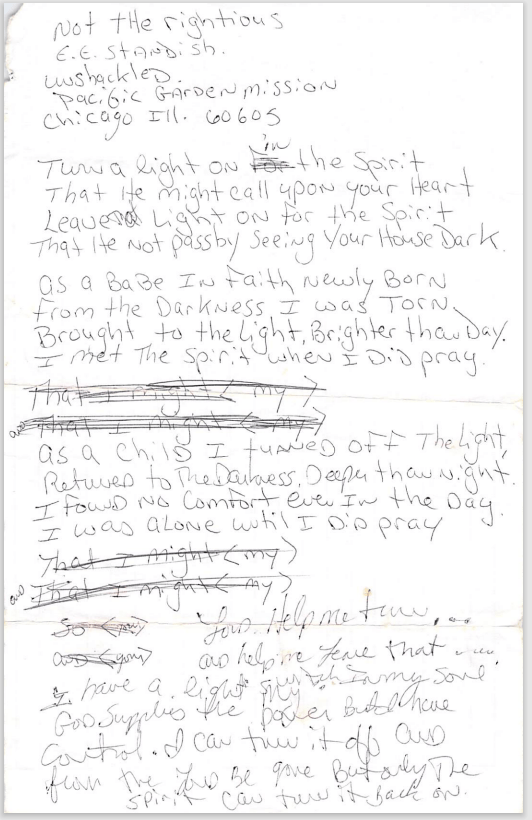 Not the rightious
E.E. Standish.
unshackled.
Pacific Garden mission
Chicago Ill. 60605
in
Turn a light on for the Spirit
That He might call upon your Heart
Leave a Light on for the Spirit
That He Not passby Seeing Your House Dark.
as a BaBe In Faith newly Born
From the Darkness I was Torn
Brought to the Light, Brighter than Day.
I met The Spirit when I Did pray.
That I might < my >
and That I might < my >
as a Child I turned off The light,
Returned to The Darkness, Deeper than night.
I found no Comfort even In the Day.
I was alone until I Did pray
That I might < my >
and That I might < my >
So <your> Lord Help me turn....
and <your> and help me leave that ....
I have a light switch In my Soul
God Supplies the power But I have
Control. I can turn it off and
from the Lord Be gone But only The
Spirit can turn it Back on.